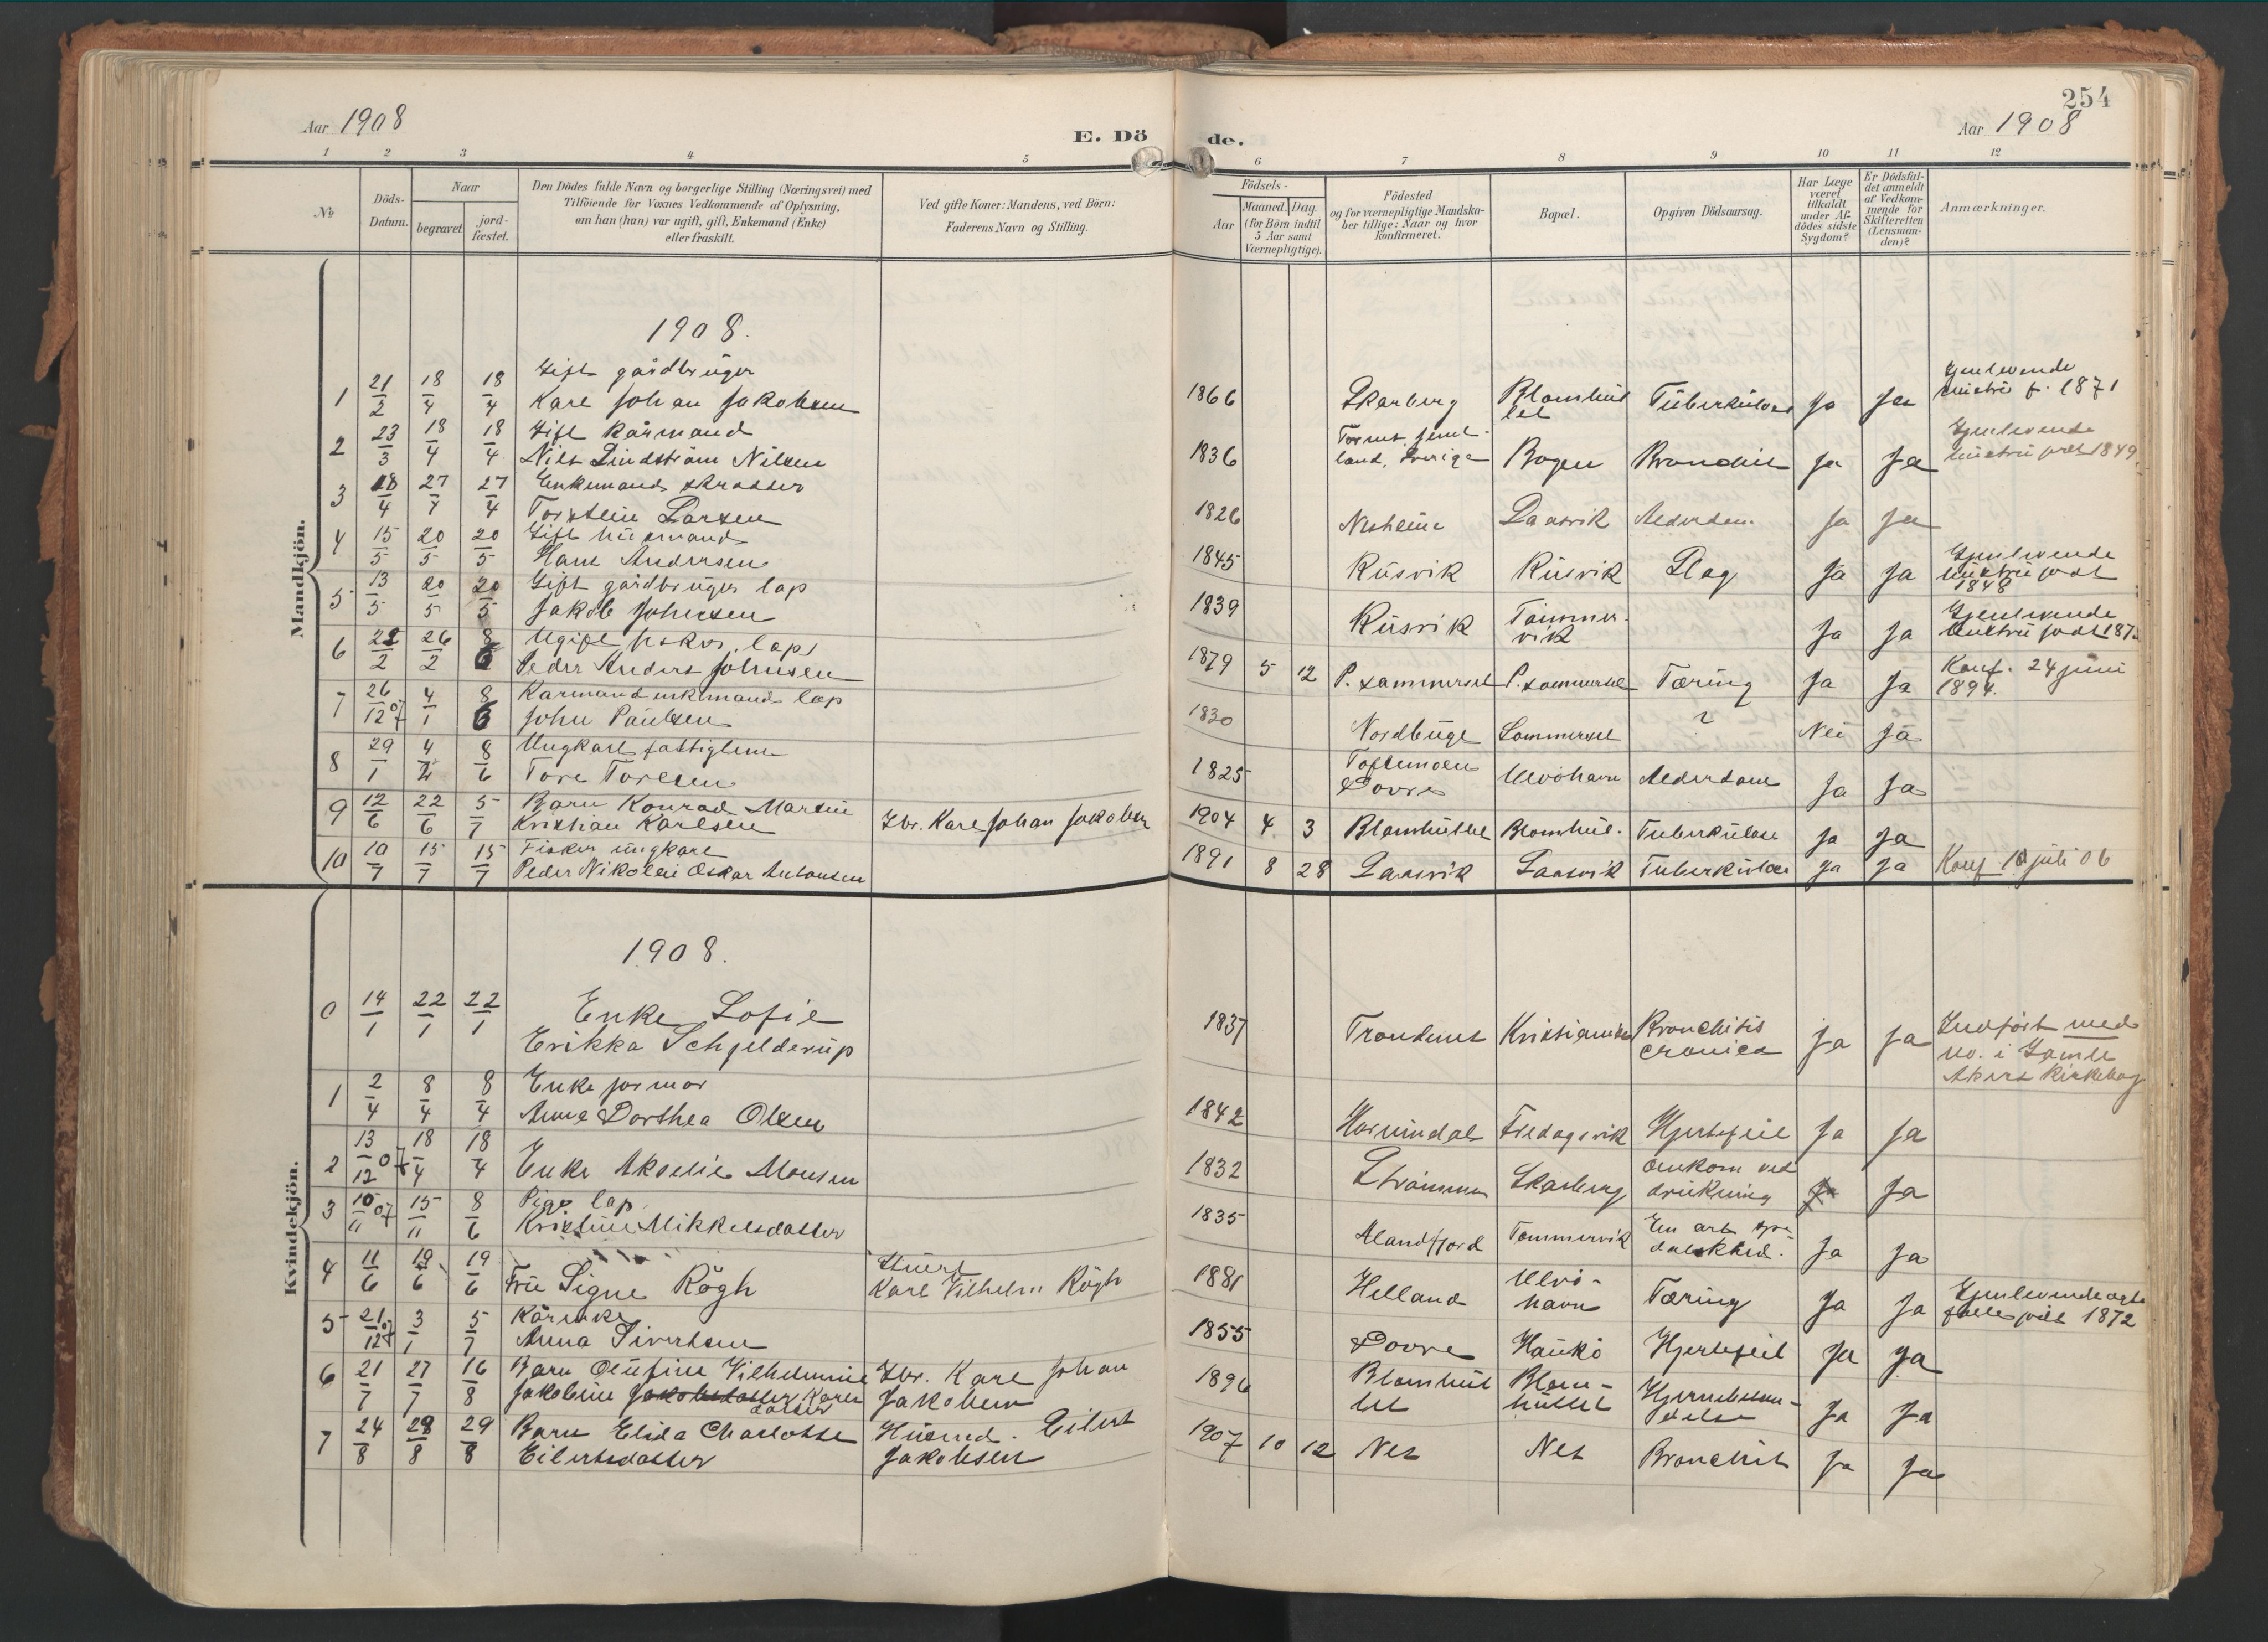 254
Aar 1908
E. Dö de.
Aar 1908
1 2 3 4 5 6 7 8 9 10 11 12
№
Döds-Datum.
Naar
begravet.
jord-fæstet.
Den Dödes fulde Navn og borgerlige Stilling (Næringsvei) med
Tilföiende for Voxnes Vedkommende af Oplysning,
om han (hun) var ugift, gift, Enkemand (Enke)
eller fraskilt.
Ved gifte Koner: Mandens, ved Börn:
Faderens Navn og Stilling.
Födsels-
Aar
Maaned. Dag.
(for Börn indtil
5 Aar samt
Værnepligtige).
Födested
og for værnepligtige Mandska-
ber tillige: Naar og hvor
konfirmeret.
Bopæl.
Opgiven Dödsaarsag.
Har Læge
været
tilkaldt
under Af-
dödes sidste
Sygdom?
Er Dödsfal-
det anmeldt
af Vedkom-
mende for
Skifteretten
(Lensman-
den)?
Anmærkninger.
Mandkjön.
1908.
1 21/2 18/4 18/4 Gift gårdbruger
Karl Johan Jakobsen 1866 Skarberg Blomhul
let Tuberkulose Ja Ja Gjenlevende
hustru f. 1871
2 23/3 18/4 18/4 Gift kårmand
Nils Lindström Nilsen 1836 Jemt-
land, Sverige Bogen Bronchit Ja Ja Gjenlevende
hustru født 1849
3 18/4 27/4 27/4 Enkemand skrædder
Torstein Larsen 1826 Nesheim Daasvik Alderdom Ja Ja
4 15/5 20/5 20/5 Gift husmand
Hans Andersen 1845 Rusvik Rusvik Slag Ja Ja Gjenlevende
hustru født
1848
5 13/5 20/5 20/5 Gift gårdbruger lap
Jakob Johnsen 1839 Rusvik Tømmer-
vik Ja Ja Gjenlevende
hustru født 187
6 22/2 26/2 8/6 Ugift fisker, lap
Peder Anders Johnsen 1879 5 12 P. Sammersel P. Sommersel Tæring Ja Ja Konf. 24 juni
1894.
7 26/12 07 4/1 8/6 Kårmand enkemand lap
John Paulsen 1830 Nordbuge Sommersel ? Nei Ja
8 29/1 4/2 8/6 Ungkarl fattiglem
Tore Toresen 1825 Toftemoen
Dovre Ulvöhavn Alderdom Ja Ja
9 12/6 22/6 5/7 Barn Konrad Martin
Kristian Karlsen Gbr. Karl Johan Jakobsen 1904 4 3 Blomhullet Blomhul. Tuberkulose Ja Ja
10 10/7 15/7 15/7 Fisker ungkarl
Peder Nikolai Oskar Antonsen 1891 8 28 Daasvik Daasvik Tuberkulose Ja Ja Konf 10 juli 06
Kvindekjön.
1908.
0 14/1 22/1 22/1 Enke Sofie
Erikka Schjelderup 1837 Trondenes Kristiania Bronchitis
cronica Ja Ja Indført med
no. i Gamle
Akers kirkebog
1 2/4 8/4 8/4 Enke jormor
Anna Dorthea Olsen 1842 Hornindal Fredagsvik Hjertefeil Ja Ja
2 13/12 07 18/4 18/4 Enke Akselie Monsen 1832 Strömmen Skarberg omkom ved
drukning Ja Ja
3 10/11 07 15/11 8/6 Pige lap
Kristine Mikkelsdatter 1835 Mandfjord Tømmervik En art spe
dalskhed. Ja Ja
4 11/6 19/6 19/6 Fru Signe Rögh Stuert
Karl Vilhelm Rögh 1881 Helland Ulvö-
havn Tæring Ja Ja Gjenlevende ægte
fælle født 1872
5 21/12 07 3/1 5/7 Kårenke
Anna Sivertsen 1855 Dovre Haukö Hjertefeil Ja Ja
6 21/7 27/7 16/8 Barn Olufine Vilhelmine
Jakobine Jakobsdatter Karls
datter Gbr. Karl Johan
Jakobsen 1896 Blomhul
let Blom-
hullet Hjernebetæn-
delse Ja Ja
7 24/8 29/8 29/8 Barn Elida Charlotte
Eilertsdatter Husmd. Eilert
Jakobsen 1907 10 12 Nes Nes Bronchit Ja Ja